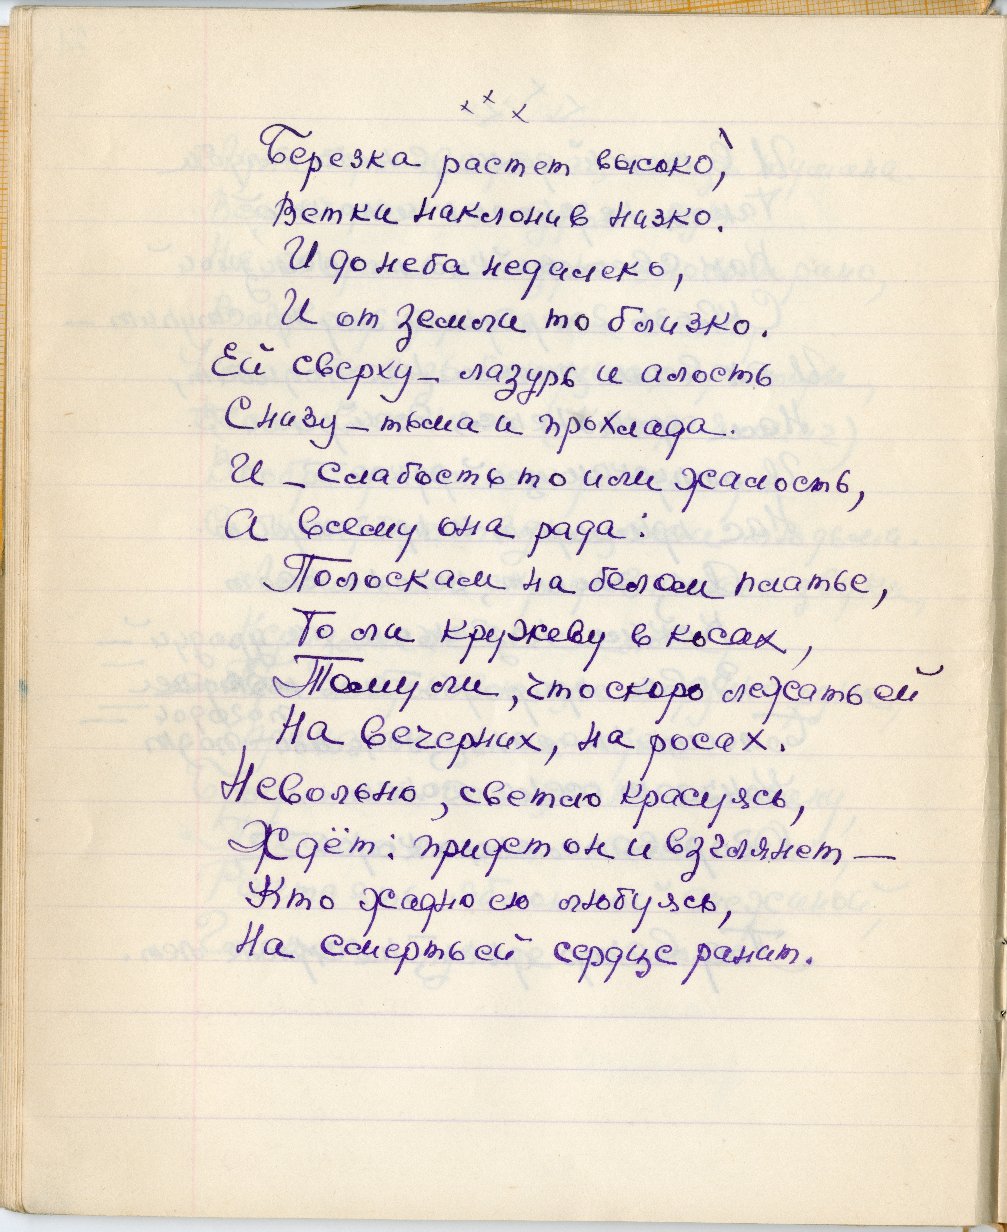 x x x
Березка растет высоко́,
Ветки наклонив низко.
И до неба недалеко,
И от земли то близко.
Ей сверху – лазурь и алость
Снизу – тьма и прохлада.
И – слабость то или жалость,
А всему она рада:
Полоскам на белом платье,
То ли кружеву в косах,
Тому ли, что скоро лежать ей
На вечерних, на росах.
Невольно, светло красуясь,
Ждёт: придет он и взглянет –
Кто жадно ею любуясь,
На смерть ей сердце ранит.